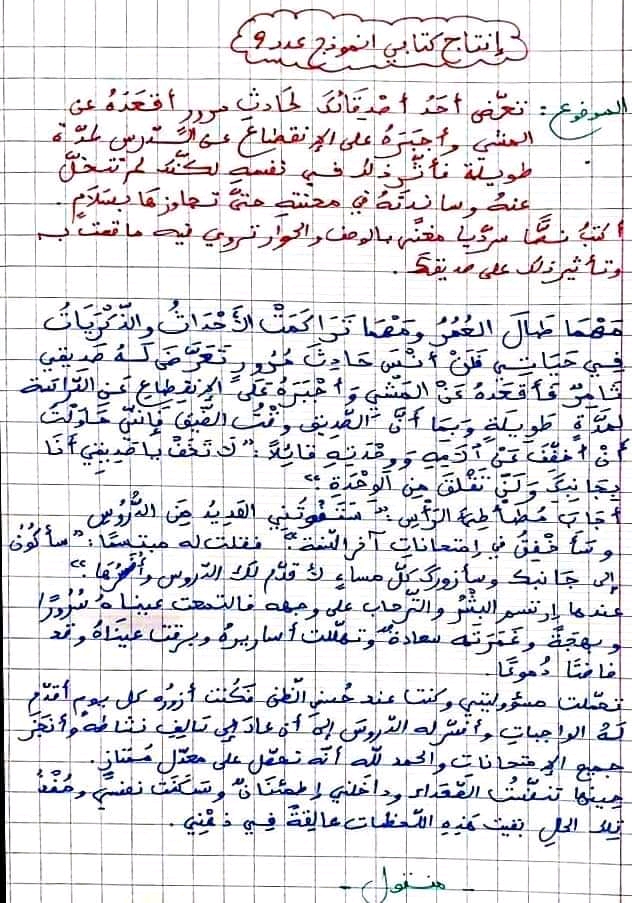 إنتاج كتابي انموذج عدد 9
الموضوع: تعرّض أحَدُ أصْدِقَائكَ لحَادثِ مرور أقعَدَهُ عن
المشي وأجبَرَهُ على الإنقطاع عن الدّرس لمدّة
طويلة فأثّر ذلك في نفسهِ لكنّكَ لم تتخلَّ
عنهُ وساندتَهُ في محنتهِ حتّى تجاوزهَا بسَلَامٍ.
أكتبُ نصًّا سرديّا مغنًى بالوصف والحوار تروي فيه ما قمت به
وتأثير ذلك على صديقك.
مَهْمَا طَالَ العُمُرُ ومَهْمَا تَرَاكَمَتْ الأَحْدَاثُ والذّكْرَيَاتُ
فِي حَيَاتِي فَلَنْ أَنْسَ حَادِثَ مُرُورٍ تَعَرَّضَ لَهُ صَدِيقِي
فَأَقْعَدَهُ عَنْ المَشْيِ وَأَجْبَرَهُ عَلَى الإنقِطَاعِ عَنِ الدّرَاسَة
لمدّةٍ طَوِيلَةٍ وَبمَا أَنَّ الصَّدِيق وقْتُ الضّيق فَإِنَّنِي حَاوَلْتُ
أَنْ أُخَفّفَ عَنْ آلَامِهِ وَوِحْدَتِهِ قَائِلًا: "لَا تَخَفْ يَا صَدِيقِي أَنَا
بِجَانِبِكَ وَلَنْ تَقْلَقَ مِن الوِحْدَةِ"
أجَابَ مُطَأطِئَ الرّأسِ: "سَتَفُوتُنِي العَدِيدُ مِنَ الدُّرُوسِ
وسَأُخْفِقُ في إمتحاناتِ آخر السّنة" فقلت له مبتسمًا: "سأكُونُ
إلى جَانبك وسأزوركَ كلّ مساءٍ لأقدّم لك الدّروس
عندها إرتسم البِشْرُ والتّرحاب على وجهه فالتمعت عيناهُ سُرُورًا
وبهجةً وغمَرَتْه سعادة وتهلّلت أساريرهُ وبرقت عينَاهُ وقد
فاضتَا دُمُوعًا.
تحمّلت مسؤوليتي وكنتُ عند حُسن الظنّ فكُنت أزورُه كل يوم أقدّم
لهُ الواجباتِ وأفسّر له الدّروسَ إلى أن عادَ إلى سَالِفِ نشَاطهِ وأنجَزَ
جميع الإمتحانات والحمد للّه أنّه تحصّل على معدّل ممتاز.
حِينهَا تنفّستُ الصّعداء ودَاخَلني إطمئنَانٌ وسَكَنت نفسِي
تِلكَ الحالِ بقيت هَذِهِ اللّحظات عالِقةً فِي ذهْنِي.
- منقول -